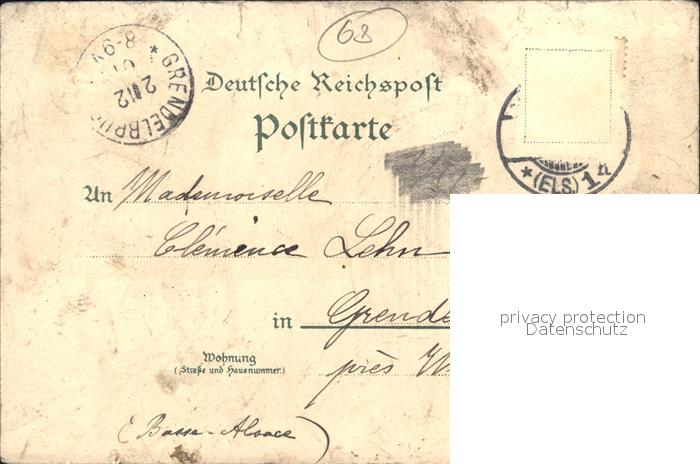 68
GRENDELBRUCH
2 12
8-9V
Deutsche Reichspost
Postkarte
(ELS.) 1
An Mademoiselle
Clémence Lehn
privacy protection
Datenschutz
in Grende
Wohnung
(Straße und Hausnummer.)
près
(Basse-Alsace)